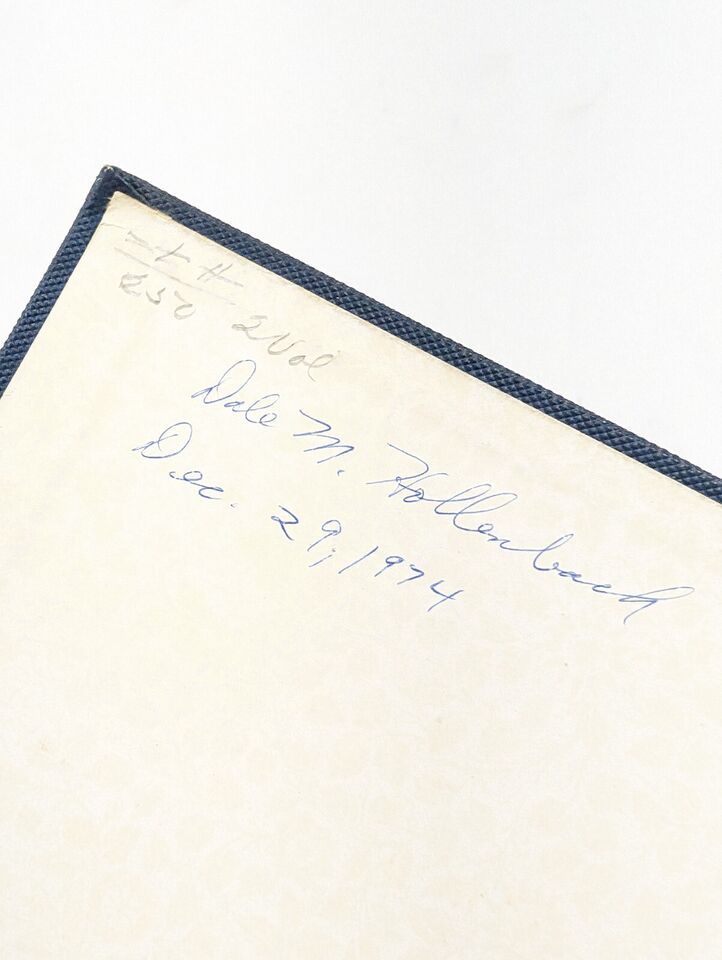 2 Vol
Dale M. Hollenbach
Dec. 29, 1974